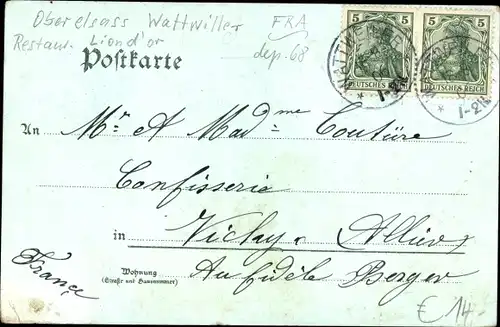 Oberelsass Wattwiller FRA
Restaur. Lion d'or dep. 68
Postkarte
5 5
DEUTSCHES REICH DEUTSCHES REICH
* 1-2N. * 1-2N.
An Mr & Madme Couture
Confisserie
in Vichy. Allier
Au fidèle Berger
France
Wohnung
(Straße und Hausnummer)
€ 14.-